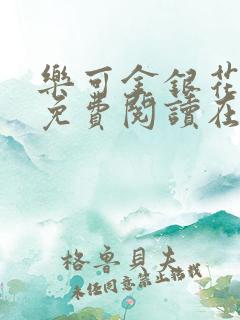 樂可金銀花
免費閱讀在
格魯貝夫
未經同意禁止轉載